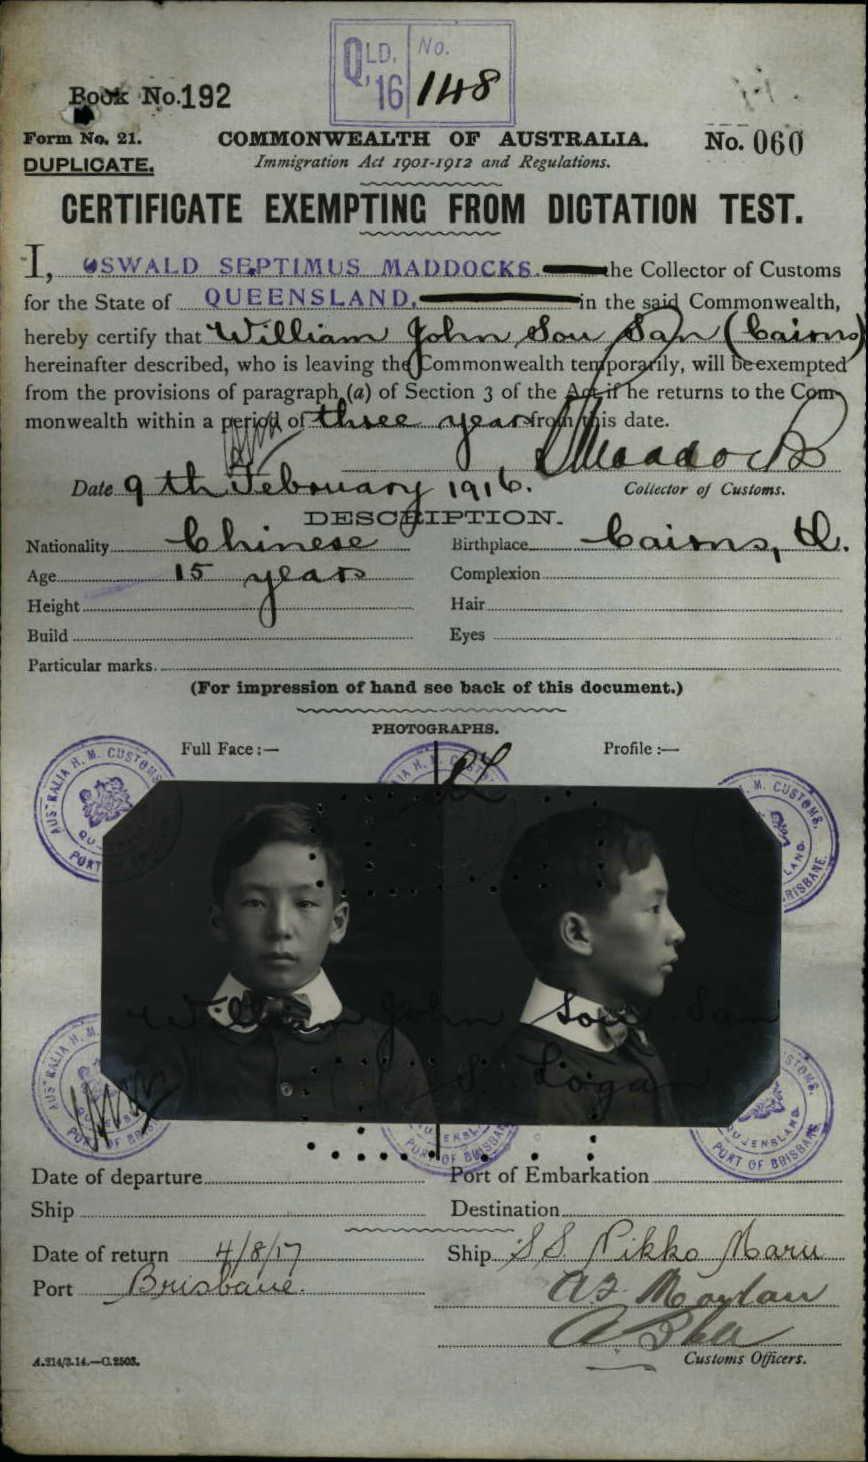 QLD. No.
'16 148
Book No. 192
Form No. 21. COMMONWEALTH OF AUSTRALIA. No. 060
DUPLICATE. Immigration Act 1901-1912 and Regulations.
CERTIFICATE EXEMPTING FROM DICTATION TEST.
I, OSWALD SEPTIMUS MADDOCKS. the Collector of Customs
for the State of QUEENSLAND. in the said Commonwealth,
hereby certify that William John Sou San (Cairns)
hereinafter described, who is leaving the Commonwealth temporarily, will be exempted
from the provisions of paragraph (a) of Section 3 of the Act if he returns to the Com-
monwealth within a period of three years from this date.
Maddocks
Date 9th February 1916. Collector of Customs.
DESCRIPTION.
Nationality Chinese Birthplace Cairns, Q.
Age 15 years Complexion
Height Hair
Build Eyes
Particular marks.
(For impression of hand see back of this document.)
PHOTOGRAPHS.
Full Face:— Profile:—
AUSTRALIA H. M. CUSTOMS. PORT
IA H.
M. CUSTOMS. LAND. BRISBANE.
William John Sou San
S Logan
AUSTRALIA H. M. PORT OF BR
QUEENSLAND. OF BRISBANE
STOMS. QUEENSLAND. PORT OF BRISBANE
Date of departure Port of Embarkation
Ship Destination
Date of return 4/8/17 Ship SS. Nikko Maru
Port Brisbane.
Customs Officers.
A.214/3.14.—C.2503.